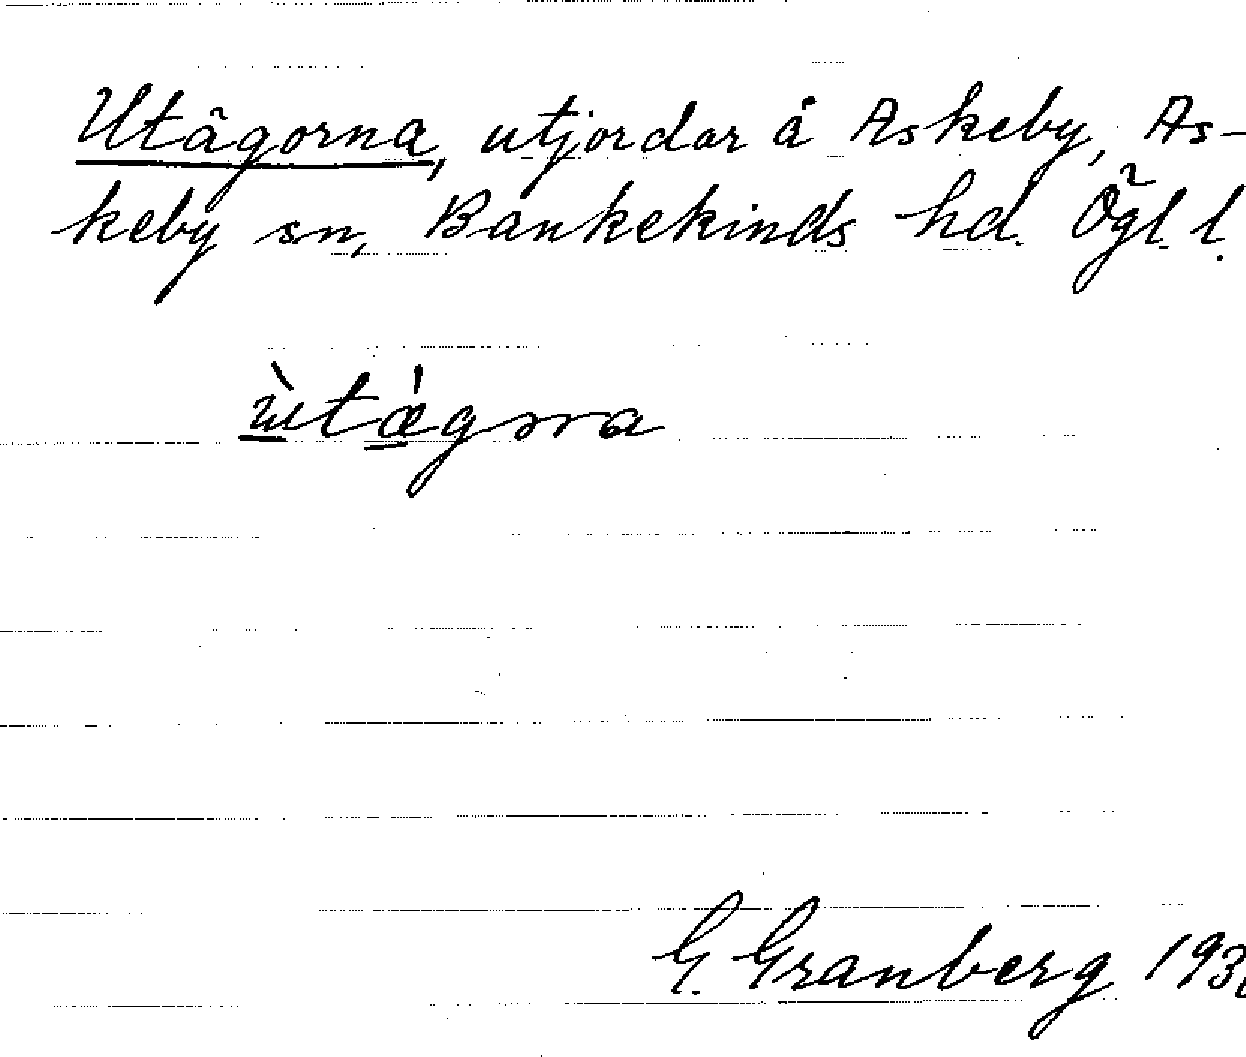 Utågorna, utjordar å Askeby, As-
keby sn, Bankekinds hd. Ögl. l.
ùtágɷrna
G. Granberg